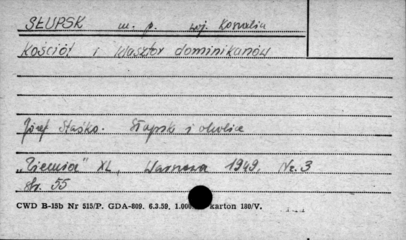 SŁUPSK m. p. woj. Koszalin
Kościół i klasztor dominikanów
Józef Staśko. Słupsk i okolice
„Ziemia" XL, Warszawa 1949, Nr. 3
Str. 55
CWD B-15b Nr 513/P. GDA-809. 6.3.59. 1.000 karton 180/V.